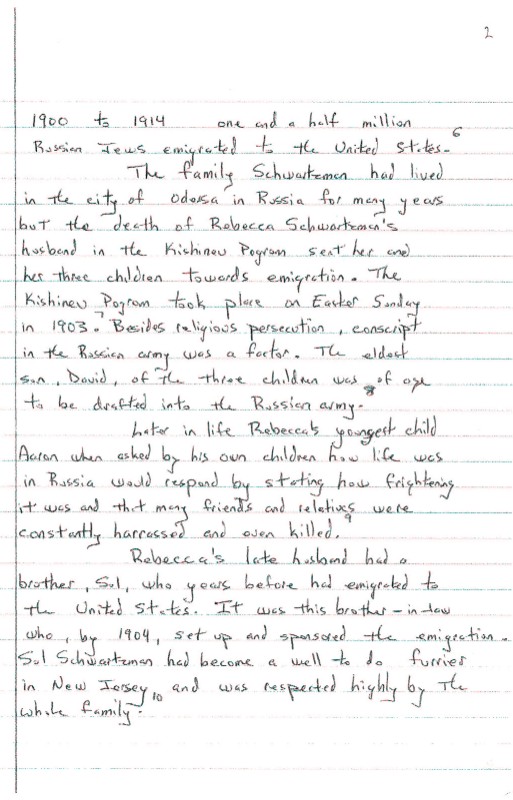 2
1900 to 1914 one and a half million
Russian Jews emigrated to the United States. 6
The family Schwartzman had lived
in the city of Odessa in Russia for many years
but the death of Rebecca Schwartzman's
husband in the Kishinev Pogrom sent her and
her three children towards emigration. The
Kishinev Pogrom took place on Easter Sunday
in 1903. 7 Besides religious persecution, conscript
in the Russian army was a factor. The eldest
son, David, of the three children was of age
to be drafted into the Russian army. 8
Later in life Rebecca's youngest child
Aaron when asked by his own children how life was
in Russia would respond by stating how frightening
it was and that many friends and relatives were
constantly harrassed and even killed. 9
Rebecca's late husband had a
brother, Sol, who years before had emigrated to
the United States. It was this brother-in-law
who, by 1904, set up and sponsored the emigration.
Sol Schwartzman had become a well to do furrier
in New Jersey 10 and was respected highly by the
whole family.